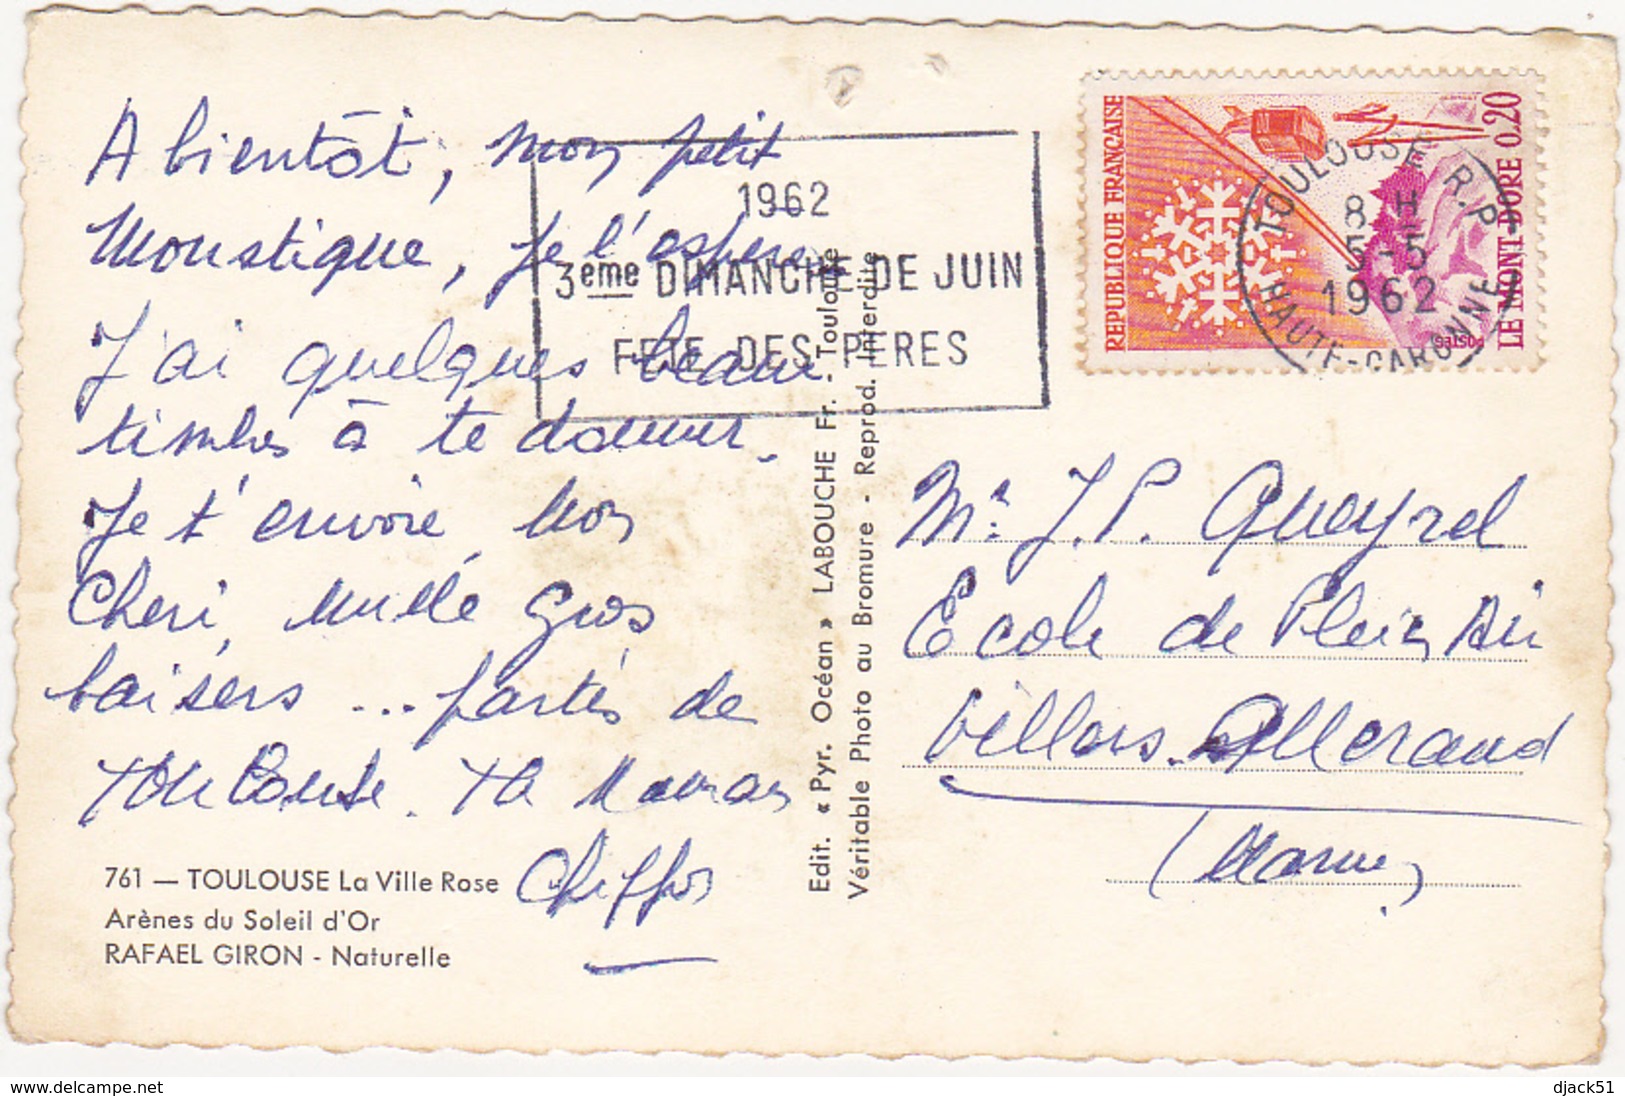 A bientôt, mon petit
Moustique, je l'espère,
J'ai quelques beaux
timbres à te donner.
Je t'envoie, mon
Cheri, mille gros
baisers ... partis de
Toulouse. Ta Maman
Chiffon
761 — TOULOUSE La Ville Rose
Arènes du Soleil d'Or
RAFAEL GIRON - Naturelle
1962
3eme DIMANCHE DE JUIN
FETE DES PERES
Edit. « Pyr. Océan » LABOUCHE Fr. - Toulouse
Véritable Photo au Bromure - Reprod. Interdite
REPUBLIQUE FRANÇAISE
LE MONT-DORE 0,20
POSTES
TOULOUSE R.P.
8 H
5-5
1962
HAUTE-GARONNE
Mr. J.P. Queyrel
Ecole de Plein Air
Villers-Allerand
(Marne)
www.delcampe.net
djack51